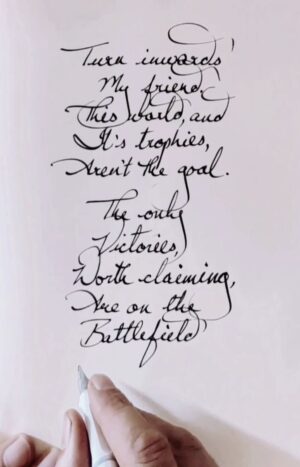 Turn inwards
My friend.
This world, and
It's trophies,
Aren't the goal.
The only
Victories,
Worth claiming,
Are on the
Battlefield